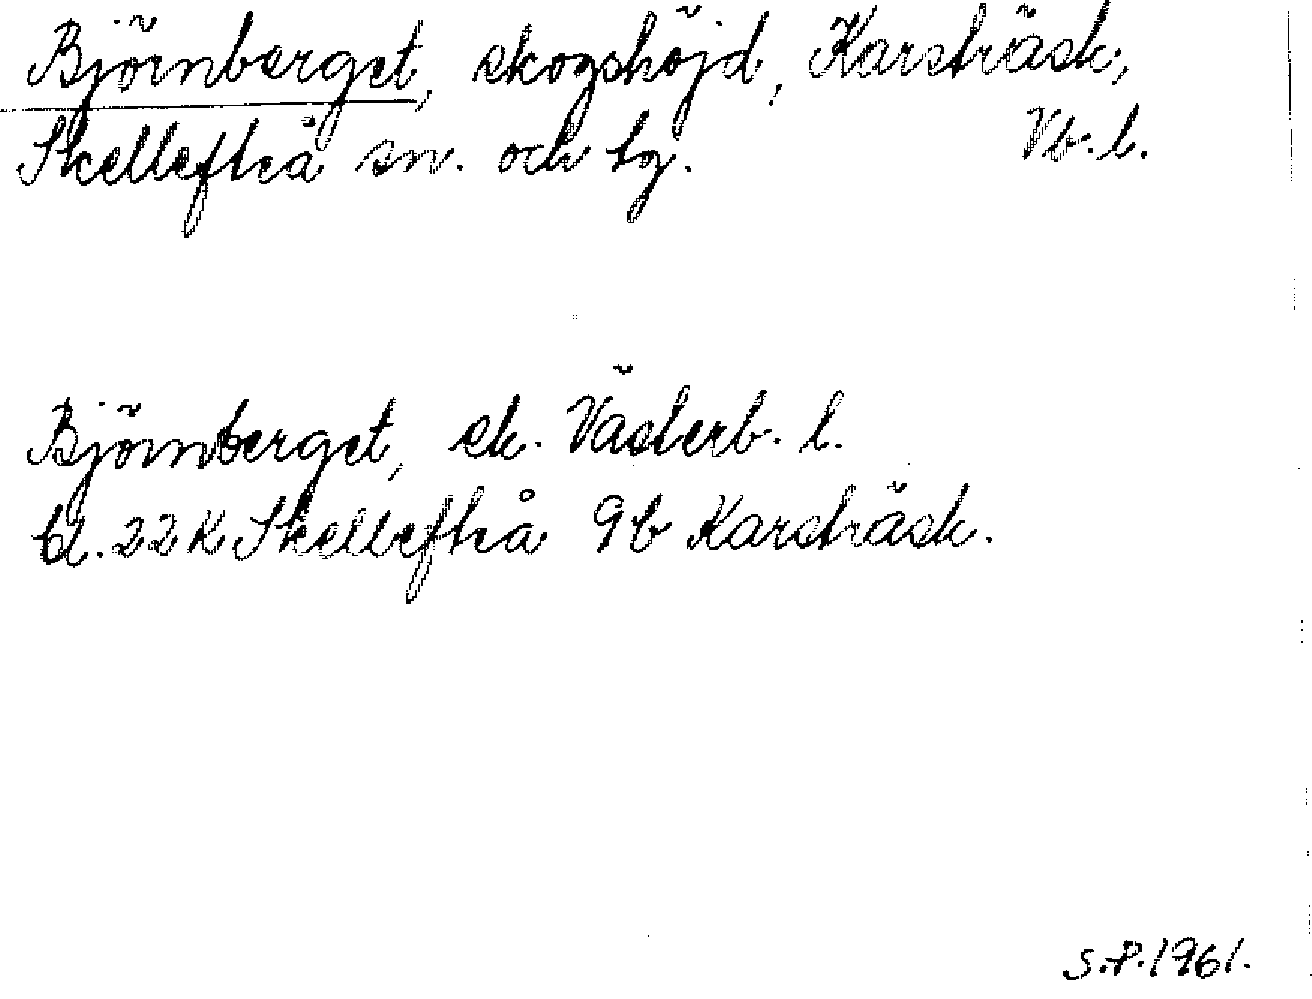 Björnberget, skogshöjd, Karsträsk,
Skellefteå sn. och tg. Vb. l.
Björnberget, ek. Västerb. l.
bl. 22 K Skellefteå 9b Karsträsk.
S.P. 1961.